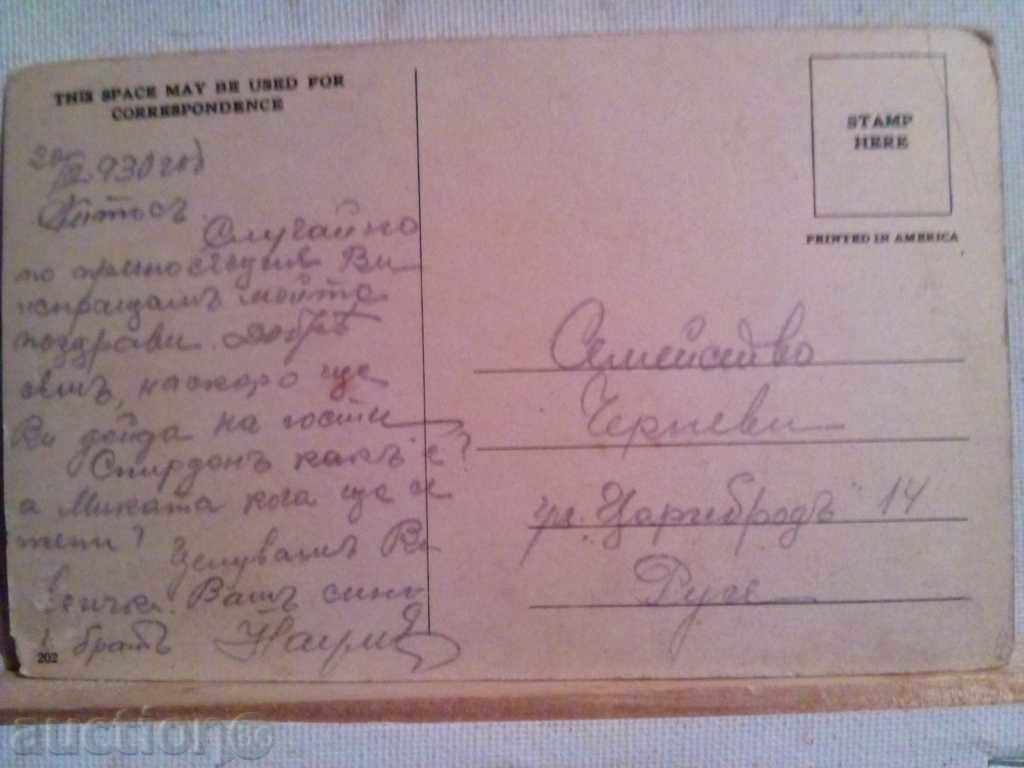 THIS SPACE MAY BE USED FOR
CORRESPONDENCE
930 год
Случайно
Ви
испращамъ моите
поздрави. Добре
съмъ, наскоро ще
Ви дойда на гости
Спирдонъ какъ е?
а Миката кога ще се
жени? Целувамъ Ви
всички. Вашъ синъ
и братъ
202
STAMP
HERE
PRINTED IN AMERICA
Семейство
Черневи
ул. "Царибродъ" 14
Русе
auction.bg